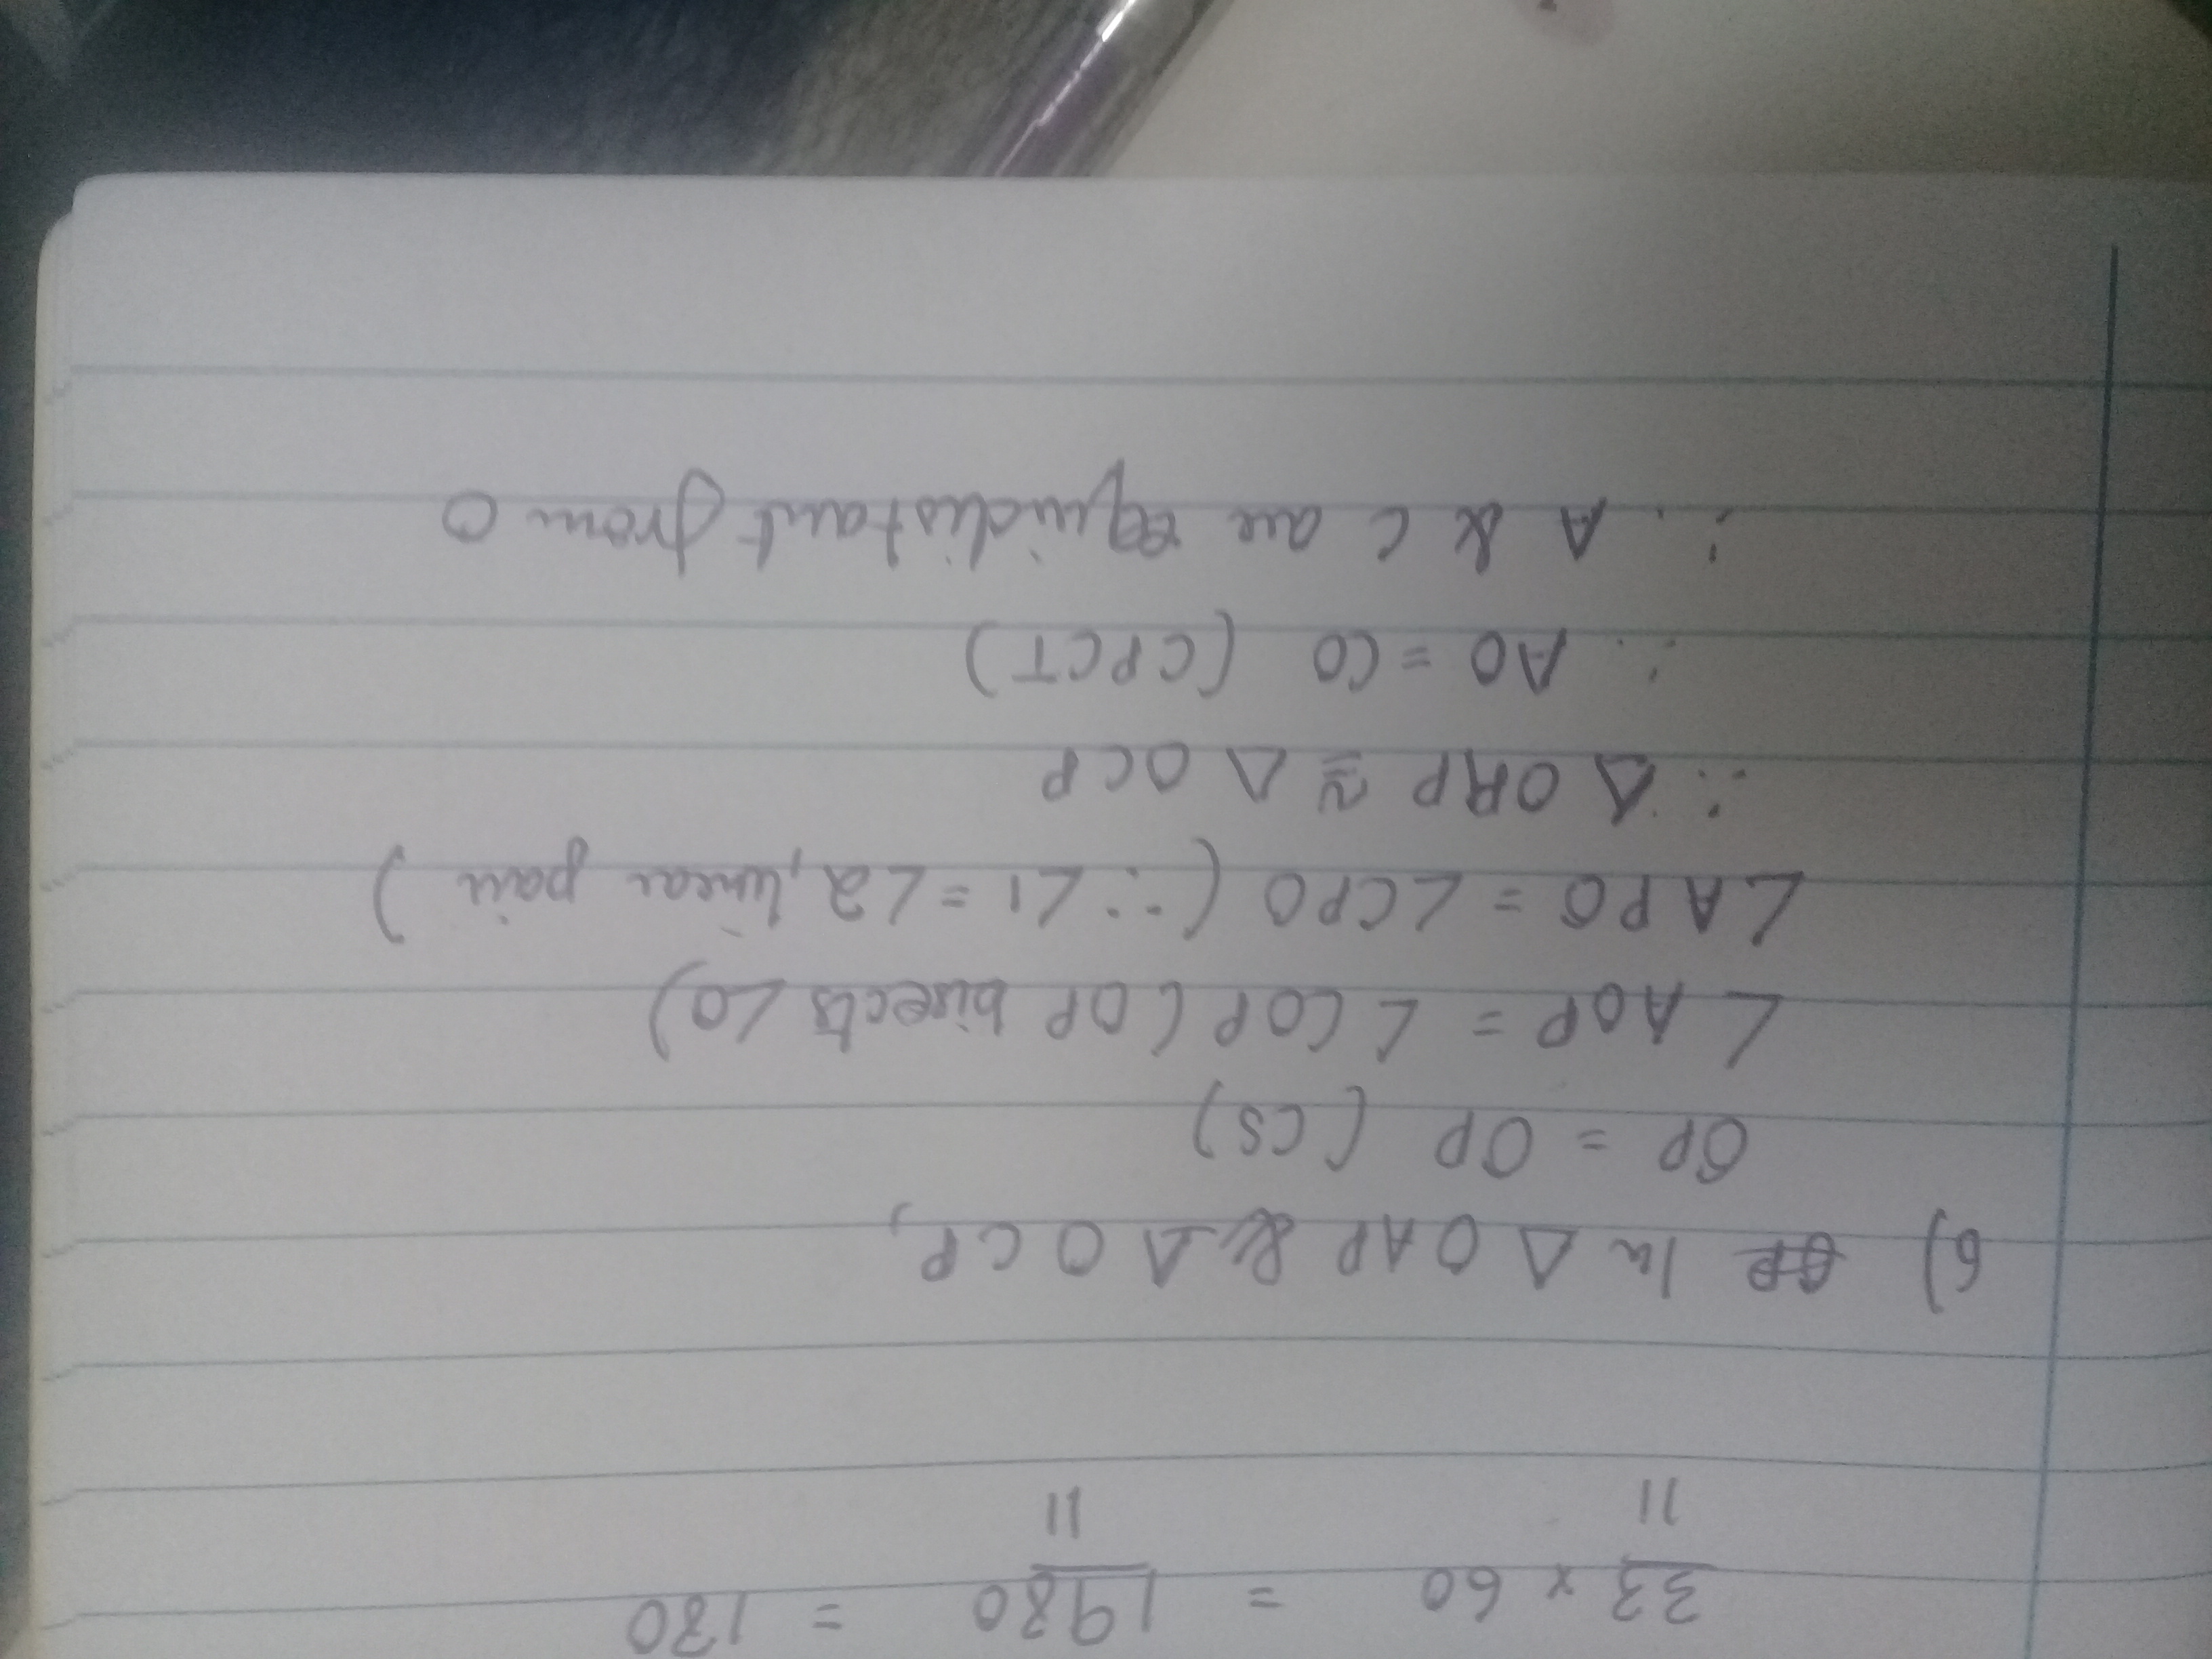 33/11 × 60 = 1980/11 = 180
6) In Δ OAP & Δ OCP,
OP = OP (CS)
∠AOP = ∠COP (OP bisects ∠O)
∠APO = ∠CPO (∵ ∠1 = ∠2, linear pair)
∴ Δ OAP ≅ Δ OCP
∴ AO = CO (CPCT)
∴ A & C are equidistant from O